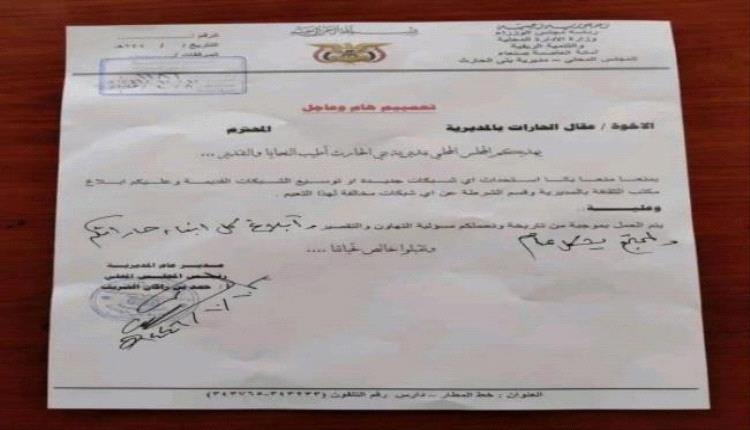 الجمهورية اليمنية
رئاسة مجلس الوزراء
وزارة الإدارة المحلية
والتنمية الريفية
أمانة العاصمة صنعاء
المجلس المحلي - مديرية بني الحارث
الرقم /
التاريخ / / ١٤٤هـ
المرفقات /
تعميم هام وعاجل
الاخوة / عقال الحارات بالمديرية المحترم
يهديكم المجلس المحلي مديرية بني الحارث أطيب التحايا والتقدير ...
يمنع منعا باتا استحداث اي شبكات جديده او توسيع الشبكات القديمة وعليكم ابلاغ
مكتب الثقافة بالمديرية وقسم الشرطة عن اي شبكات مخالفة لهذا التعيم .
وعليه ..
يتم العمل بموجبة من تاريخة ونحملكم مسولية التهاون والتقصير وابلاغ كل ابناء حاراتكم
والمجتمع بشكل عام
وتقبلوا خالص تحياتنا ....
مدير عام المديرية
رئيس المجلس المحلي
حمد بن راكان الشريف
العنوان : خط المطار - دارس رقم التلفون (٣٤٣٩٣٣-٣٤٣٧٦٥)